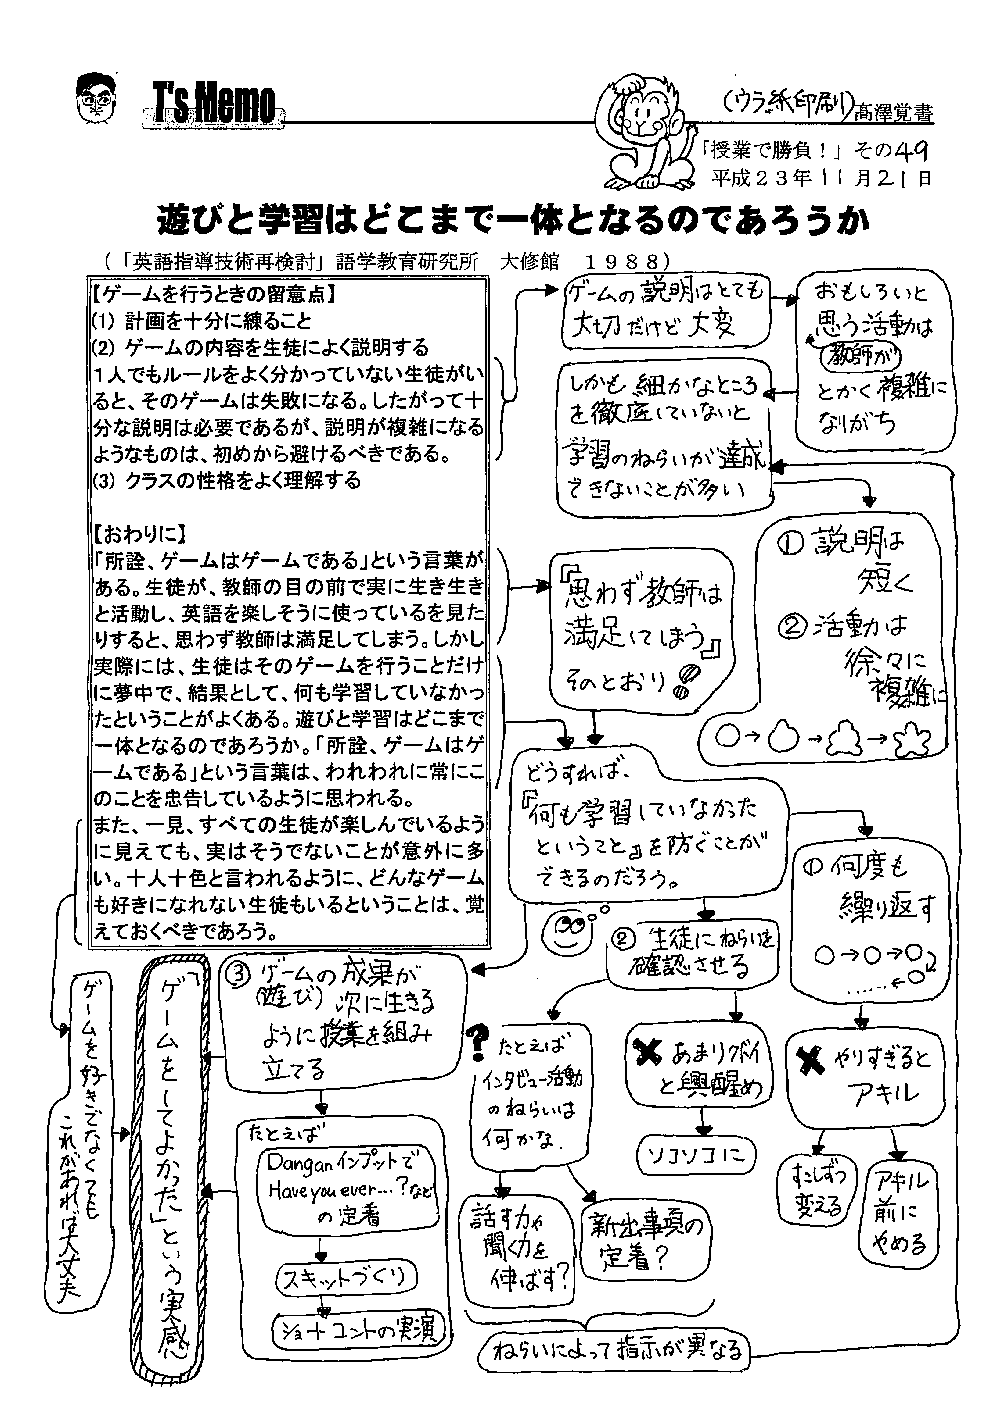 T's Memo
(ウラ紙印刷)
髙澤覚書
「授業で勝負!」その49
平成23年11月21日
遊びと学習はどこまで一体となるのであろうか
(「英語指導技術再検討」語学教育研究所 大修館 1988)
【ゲームを行うときの留意点】
(1) 計画を十分に練ること
(2) ゲームの内容を生徒によく説明する
1人でもルールをよく分かっていない生徒がい
ると、そのゲームは失敗になる。したがって十
分な説明は必要であるが、説明が複雑になる
ようなものは、初めから避けるべきである。
(3) クラスの性格をよく理解する
【おわりに】
「所詮、ゲームはゲームである」という言葉が
ある。生徒が、教師の目の前で実に生き生き
と活動し、英語を楽しそうに使っているを見た
りすると、思わず教師は満足してしまう。しかし
実際には、生徒はそのゲームを行うことだけ
に夢中で、結果として、何も学習していなかっ
たということがよくある。遊びと学習はどこまで
一体となるのであろうか。「所詮、ゲームはゲ
ームである」という言葉は、われわれに常にこ
のことを忠告しているように思われる。
また、一見、すべての生徒が楽しんでいるよう
に見えても、実はそうでないことが意外に多
い。十人十色と言われるように、どんなゲーム
も好きになれない生徒もいるということは、覚
えておくべきであろう。
ゲームの説明はとても
大切だけど大変
おもしろいと
思う活動は
教師が
とかく複雑に
なりがち
しかも細かなところ
を徹底していないと
学習のねらいが達成
できないことが多い
① 説明は
短く
② 活動は
徐々に
複雑に
『思わず教師は
満足してしまう』
そのとおり!!
どうすれば、
『何も学習していなかった
ということ』を防ぐことが
できるのだろう。
① 何度も
繰り返す
② 生徒にねらいを
確認させる
③ ゲームの成果が
(遊び) 次に生きる
ように授業を組み
立てる
✖ やりすぎると
アキル
すこしずつ
変える
アキル
前に
やめる
✖ あまりクドイ
と興醒め
ソコソコに
?
たとえば
インタビュー活動
のねらいは
何かな
話す力や
聞く力を
伸ばす?
新出事項の
定着?
ねらいによって指示が異なる
たとえば
Danganインプットで
Have you ever…?など
の定着
スキットづくり
ショートコントの実演
「ゲームをしてよかった」という実感
ゲームを好きでなくても
これがあれば大丈夫